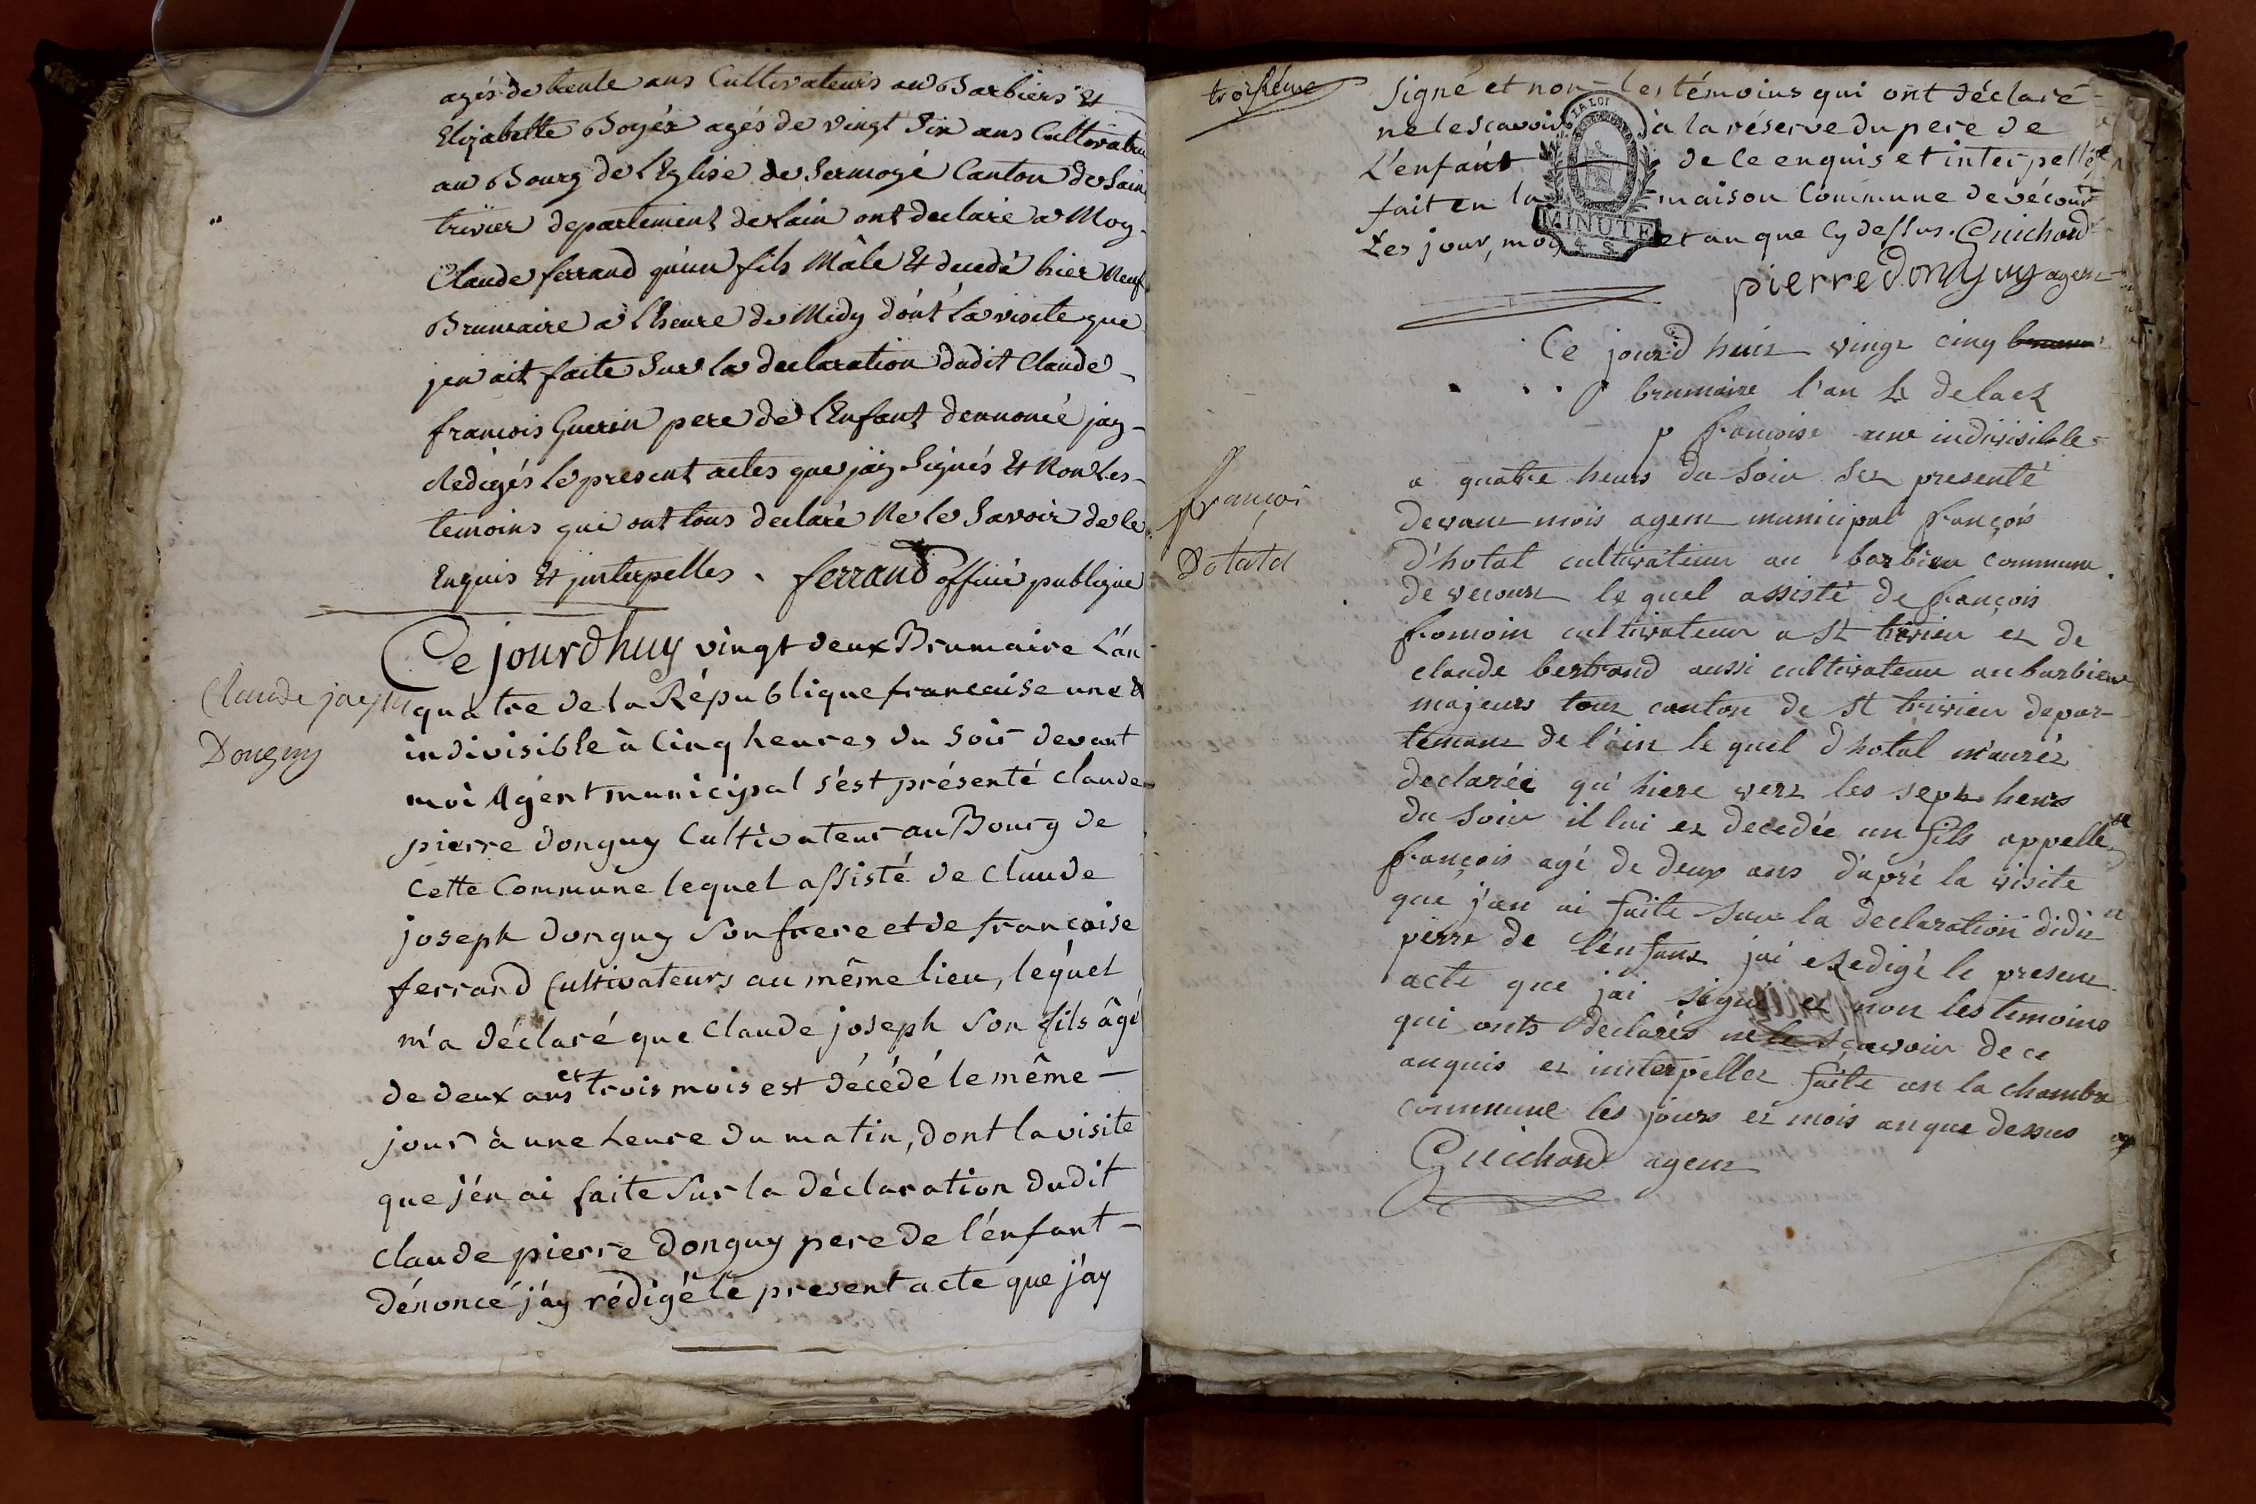 agés de trente ans Cultivateurs au Barbiers Et
Elizabette Boyér agés de vingt Six ans Cultivateur
au Bourg de l'Eglise de Sermoyé Canton de Sain
trivier departement de Lain ont declaré a Moy
Claude ferrand qu'un fils Mâle Et decedé hier Neuf
Brumaire a l'heure de Midy dont la visite que
jen ait faite Sur la declaration dudit Claude
françois Guerin pere de l'Enfant dennoncé jay
Redigés le present actes que jay Signés Et Non Les
temoins qui ont tous declaré Ne le Savoir de le
Enquis Et jnterpelles . ferrand officié publique
Claude joseph
Donguy
Ce jourdhuy vingt deux Brumaire L'an
quâtre de la République francaise une &
indivisible à Cinq heures du Soir devant
moi Agent municipal s'est présenté claude
pierre donguy Cultivateur au Bourg de
Cette Commune lequel assisté de Claude
joseph donguy Son frere et de françoise
ferrand Cultivateurs au même lieu, lequel
m'a déclaré que Claude joseph Son fils âgé
de deux ans et trois mois est décédé le même
jour à une heure du matin, dont la visite
que j'én ai faite Sur la déclaration dudit
Claude pierre donguy pere de l'énfant
dénoncé j'ay rédigé le present acte que j'ay
troisiéme
Signé et non les témoins qui ont déclaré
ne le sçavoir à la réserve du pere de
L'enfant de Ce enquis et interpellé
fait en la maison Commune de vécour
Les jour, mois et an que Cy dessus. Guichard
pierre donguy agent
LA LOI
MINUTE
4 S.
Ce jourd huit vingt cinq
brumaire l'an 4 de la R
p francoise une indivisible
françoi
Dotatal
a quatre heurs du Soir set presenté
devant mois agent municipal françois
d'hotal cultivateur au barbier commune
de vecourt le quel assisté de françois
fromoin cultivateur a St trivier et de
claude bertrand aussi cultivateur au barbier
majeurs tout canton de St trivier depar
temant de l'ain le quel d'hotal m'auréz
declarée qu'hiere verz les sept heurs
du Soir il lui et decedée un fils appelle
françois agé de deux ans d'apré la visite
que j'an ai faite sur la declaration didit
perre de l'énfant jai eRedigé le present
acte que jai signé et non les temoins
qui onts declarés ne le sçavoir de ce
anquis et interpellez faite an la chambre
commune les jours et mois an que dessus
Guichard agent